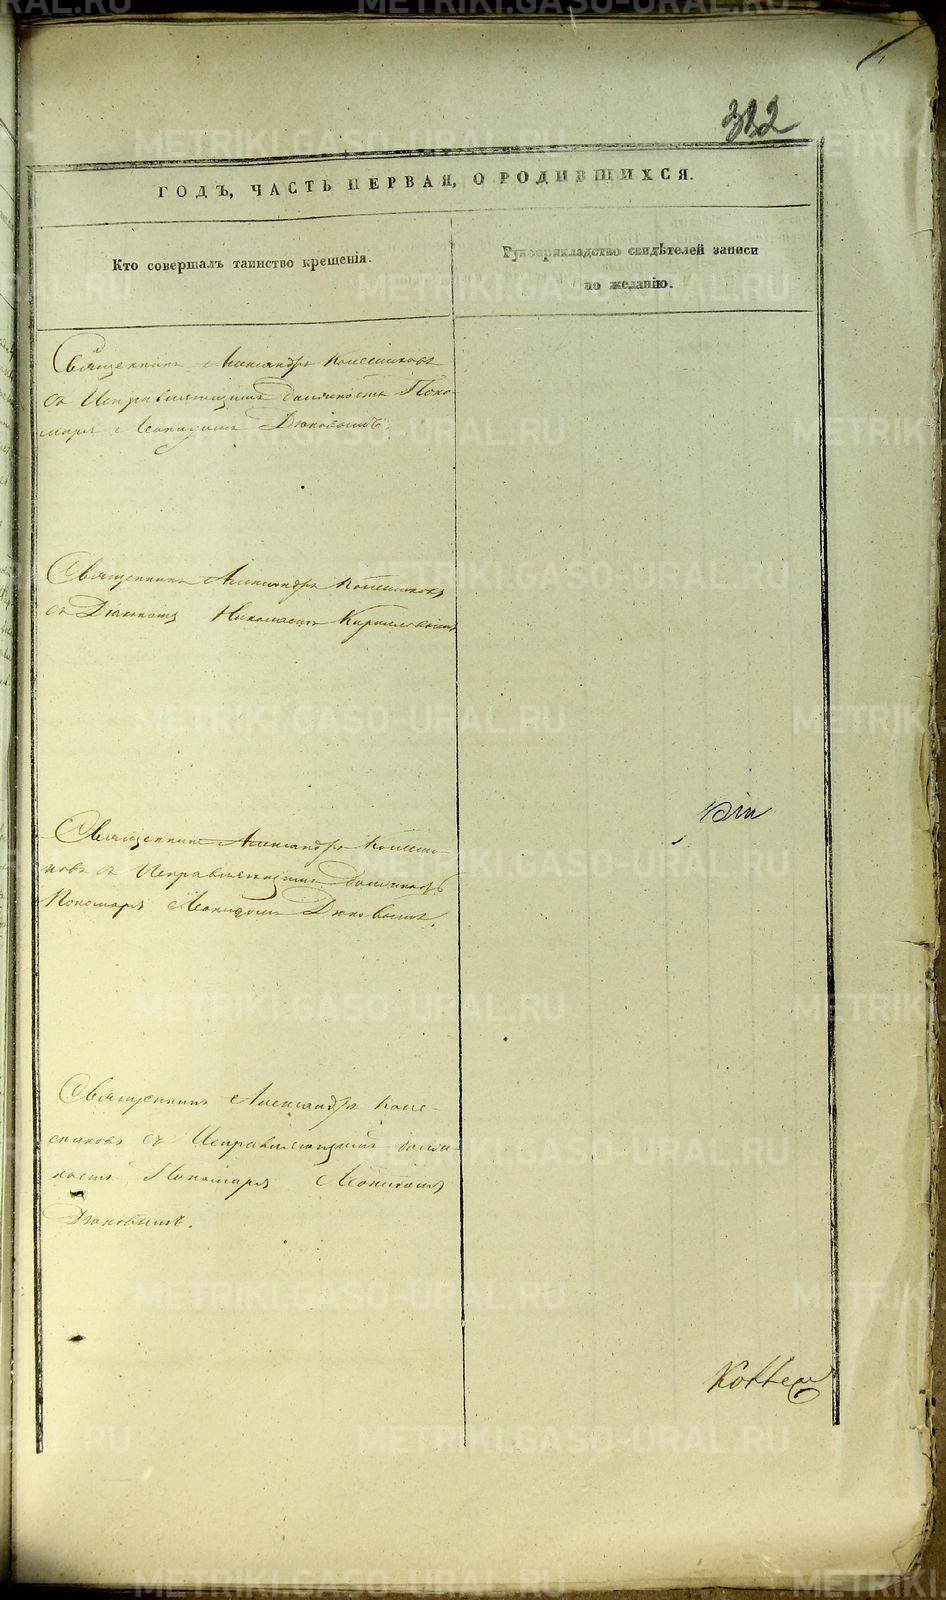 322
ГОДЪ, ЧАСТЬ ПЕРВАЯ, О РОДИВШИХСЯ.
Кто совершалъ таинство крещенія.
Рукоприкладство свидѣтелей записи
по желанію.
Священникъ Александръ Колесниковъ
съ Исправляющимъ должность Поно-
маря Леонидомъ Дюковымъ.
Священникъ Александръ Колесниковъ
съ Дьякономъ Николаемъ Кирилловымъ
Священникъ Александръ Колесни-
ковъ съ Исправляющимъ должность
Пономаря Леонидомъ Дюковымъ.
Священникъ Александръ Коле-
сниковъ съ Исправляющимъ долж-
ность Пономаря Леонидомъ
Дюковымъ.
METRIKI.GASO-URAL.RU